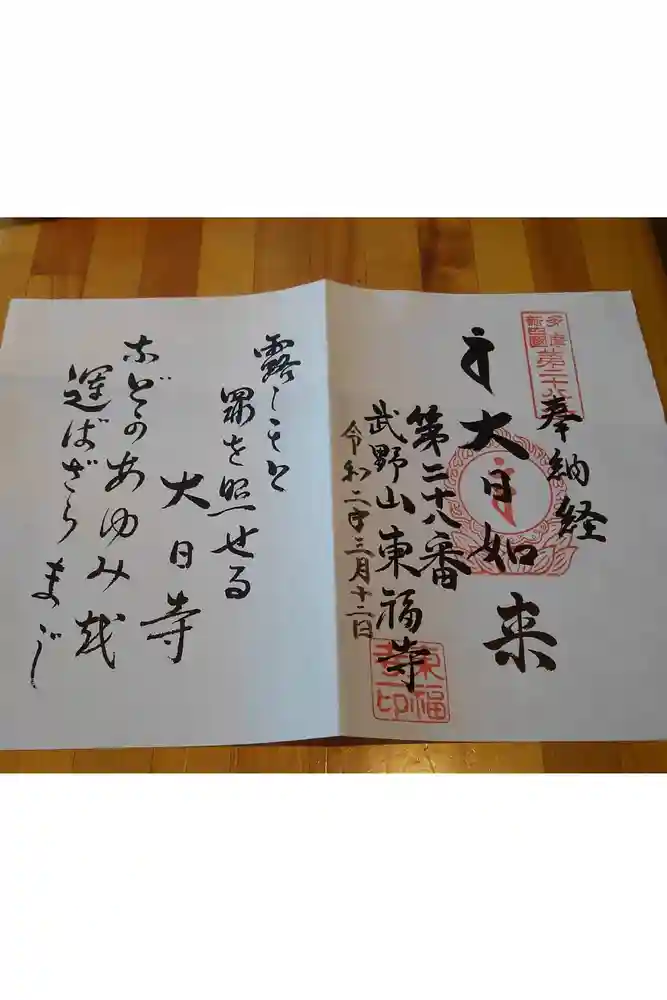 奉納経
大日如来
第二十八番
武野山東福寺
令和二年三月十二日
露しもと
罪を照せる
大日寺
などかあゆみ越
運ばざらまじ
多摩
新四国
第二十八